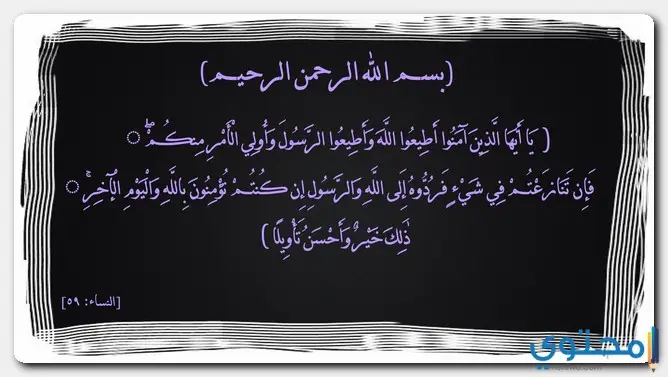 (بسم الله الرحمن الرحيم)
( يَا أَيُّهَا الَّذِينَ آمَنُوا أَطِيعُوا اللَّهَ وَأَطِيعُوا الرَّسُولَ وَأُولِي الْأَمْرِ مِنكُمْ ۖ
فَإِن تَنَازَعْتُمْ فِي شَيْءٍ فَرُدُّوهُ إِلَى اللَّهِ وَالرَّسُولِ إِن كُنتُمْ تُؤْمِنُونَ بِاللَّهِ وَالْيَوْمِ الْآخِرِ ۚ
ذَٰلِكَ خَيْرٌ وَأَحْسَنُ تَأْوِيلًا )
[النساء: ٥٩]
محتوى